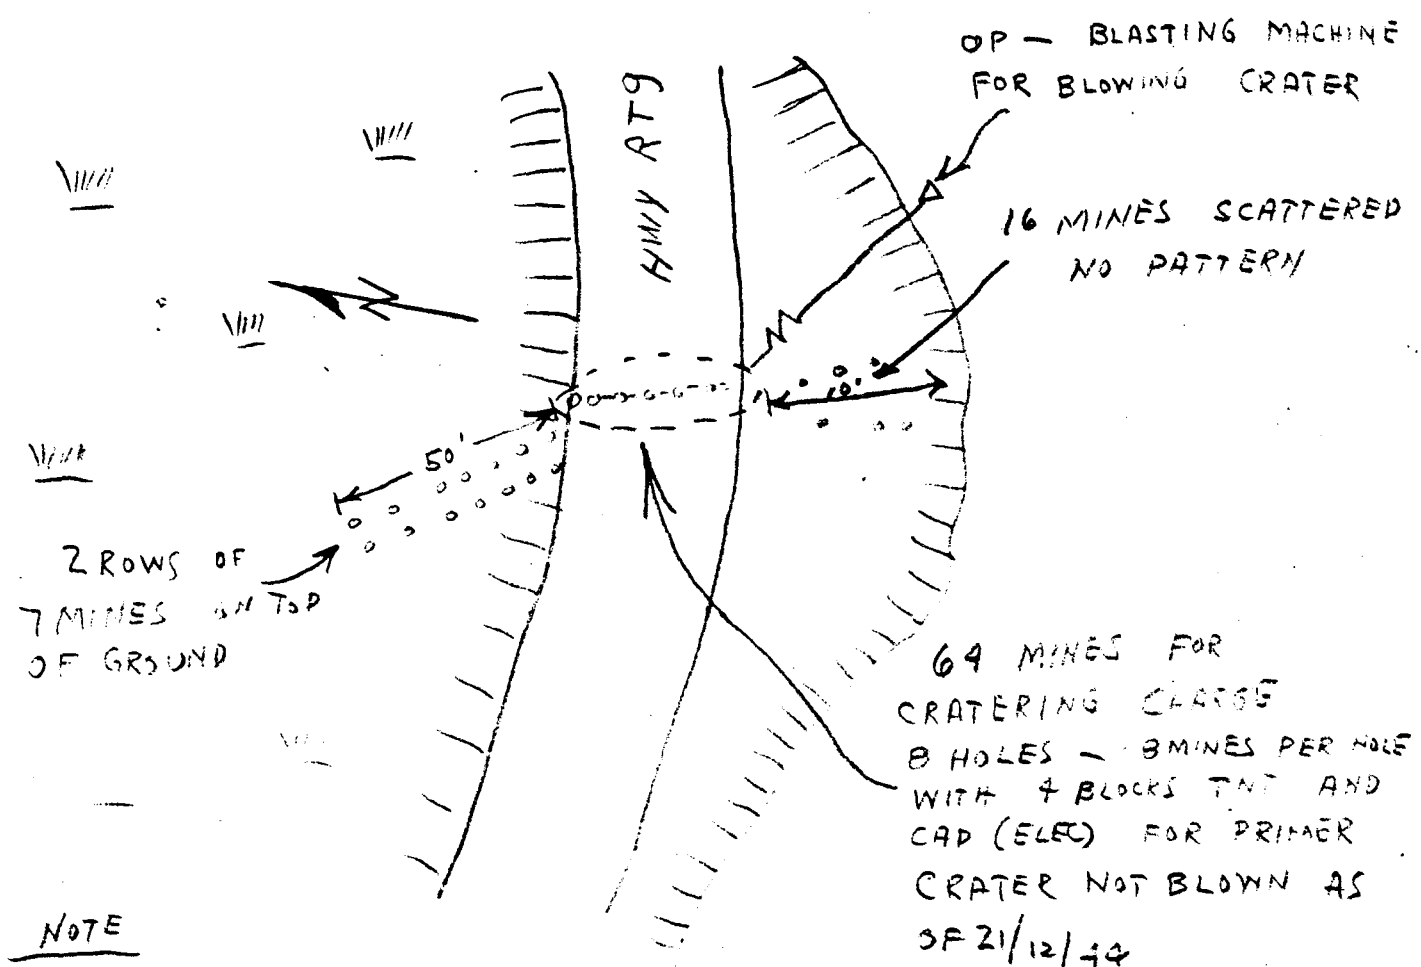 OP — BLASTING MACHINE
FOR BLOWING CRATER
HWY RT9
16 MINES SCATTERED
NO PATTERN
10'
50'
2 ROWS OF
7 MINES ON TOP
OF GROUND
64 MINES FOR
CRATERING CHARGE
8 HOLES — 8 MINES PER HOLE
WITH 4 BLOCKS TNT AND
CAP (ELEC) FOR PRIMER
CRATER NOT BLOWN AS
OF 21/12/44
NOTE